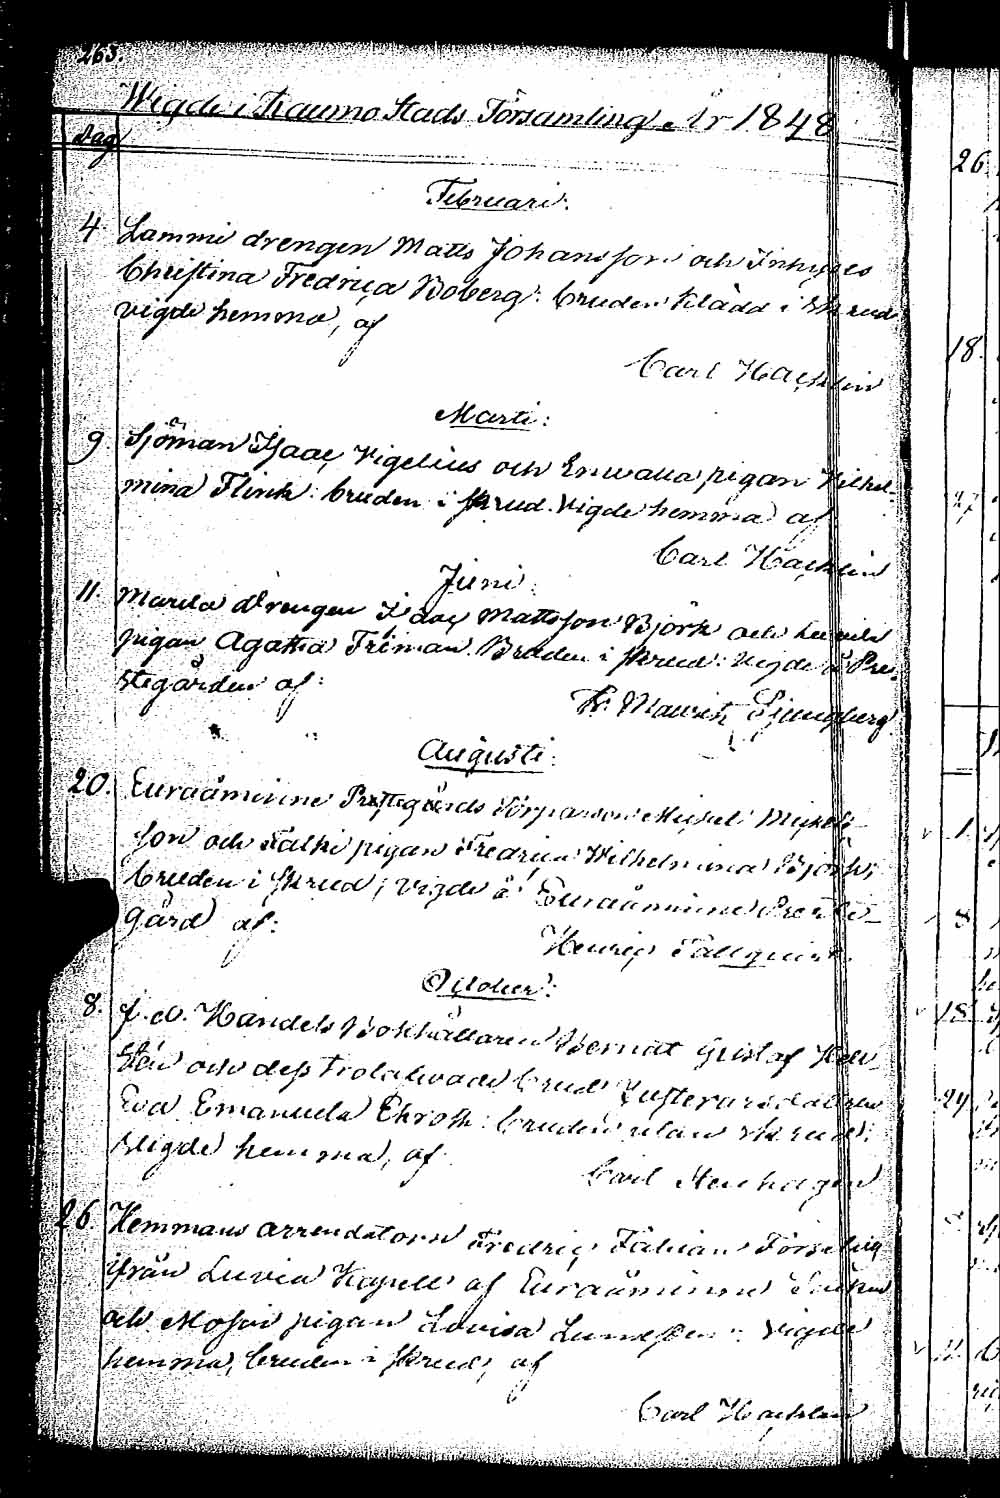 265.
Wigde i Raumo Stads Församling År 1848
Dag
Februari:
4. Lammi drengen Matts Johansson och Inhyses
Christina Fredrica Boberg: bruden klädd i skrud
vigde hemma, af
Carl Hacklin
Marti:
9. Sjöman Isaac Vigelius och Enwalla pigan Wilhel-
mina Flink: bruden i skrud. Vigde hemma af
Carl Hacklin
Juni:
11. Marila drengen Isaac Mattsson Björk och
pigan Agatha Friman. Bruden i skrud: vigde å Pre-
stegården af:
Fr. Mauritz Ljungberg
Augusti:
20. Euraåminne Prestegårds Torparson Michel Michels-
son och Falki pigan Fredrica Wilhelmina Björk;
bruden i skrud; vigde å Euraåminne Preste-
gård af:
Henric Tallqvist.
October:
8. f.d. Handels Bokhållaren Bernat Gustaf
och dess trolofwade brud
Eva Emanuela Ekroth: bruden utan skrud;
Vigde hemma, af
Carl Stenhagen
26 Hemmans arrendatorn Fredric Fabian
ifrån Luvia Kapell af Euraåminne Socken
och Mosari pigan Lovisa vigde
hemma, bruden i skrud, af
Carl Hacklin
26.
18.
27
1.
8
18.
29
11.